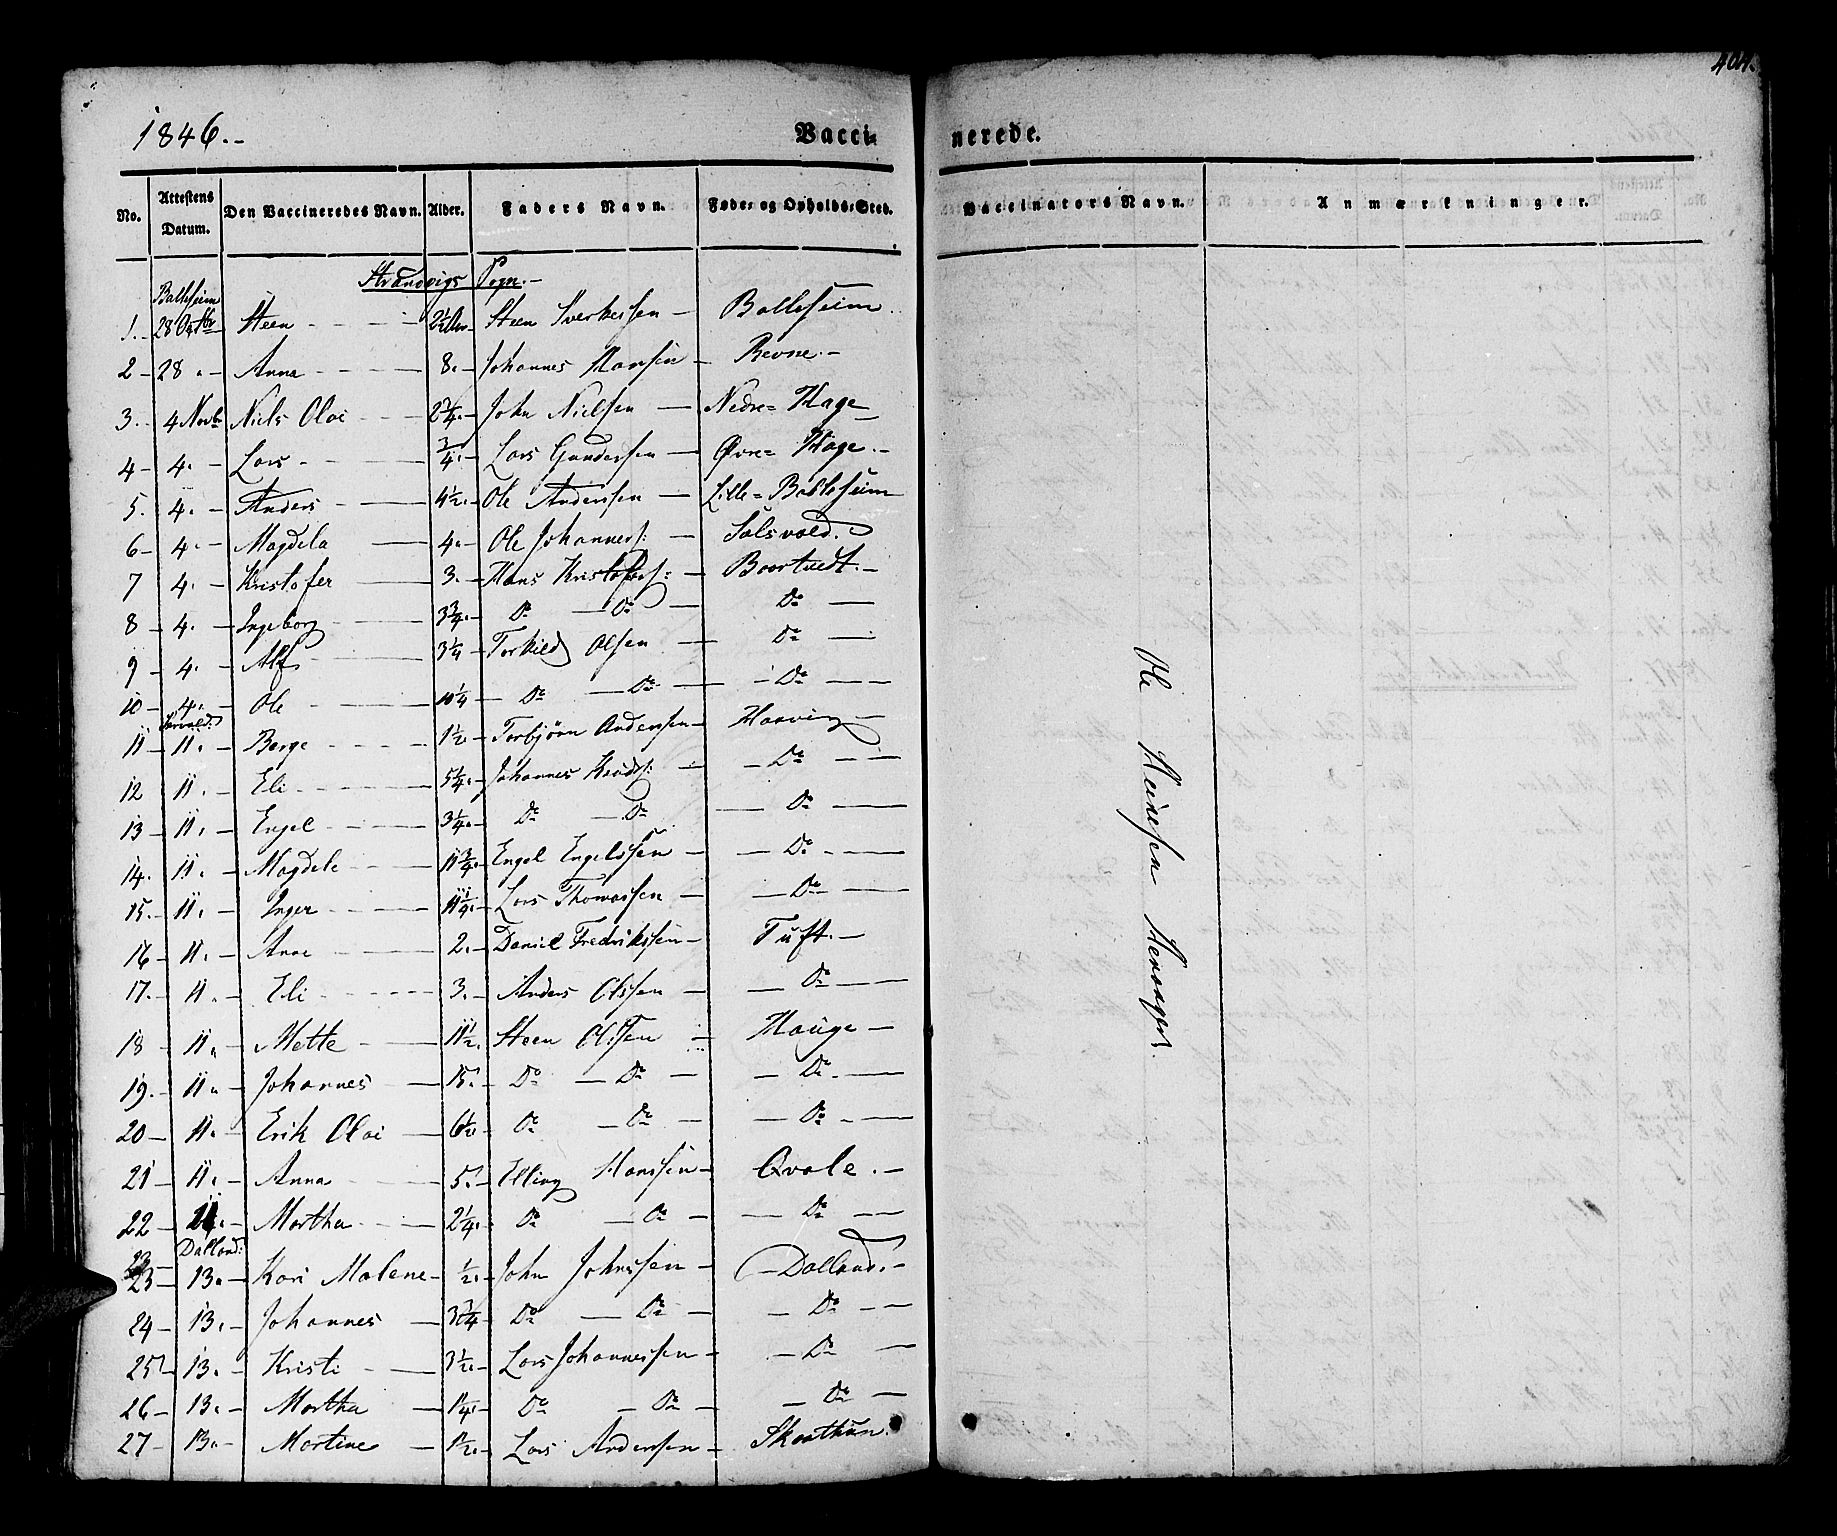 404.
1846.-
Vaccinerede.
No. Attestens Datum. Den Vaccineredes Navn. Alder. Faders Navn. Føde- og Opholds-Sted. Vaccinators Navn. Anmærkninger.
Strandvigs Sogn.-
Balleseim
1.- 28 Octbr Steen - 2½ Aar Steen Sverkessen - Balleseim
2 - 28 - Anna - 8.- Johannes Hansen - Revne.-
3.- 4 Novbr Niels Olai - 2¾.- John Nielsen - Nedre=Hage
4 - 4.- Lars - ¾.- Lars Gundersen - Øvre=Hage.-
5. 4.- Anders - 4½.- Ole Andersen - Lille=Balleseim
6 - 4.- Magdela 4.- Ole Johanness: - Salsvold.
7 4.- Kristofer - 3.- Hans Kristofers: - Boortvedt.-
8 - 4.- Ingeborg - 3¾.- Do - Do - Do -
9 - 4. Alf - 3¼ Torkild Olsen - Do -
10 - 4.- Ole - 10¼ - Do - Do - - Do -
11 - 11.- Børge - 1½ - Torbjørn Andersen - Haavig -
12 11.- Eli - 5¼.- Johannes Knuds: - - Do -
13 - 11.- Engel - 3¼.- Do - Do - Do -
14. 11.- Magdele - 11¾.- Engel Engelssen - - Do -
15.- 11.- Inger - 11¼.- Lars Thomassen - - Do -
16 - 11.- Anne - 2.- Daniel Fredrikssen - Tuft.-
17.- 11.- Eli - 3.- Anders Olssen - - Do -
18 - 11.- Mette - 11½. Steen Olssen - Hauge -
19.- 11.- Johannes - 15.- Do - Do - - Do -
20 - 11.- Erik Olai - 6½ Do - Do - - Do -
21 - 11.- Anna - 5.- Elling Hanssen - Qvale.-
22 - 11.- Martha - 2¼.- Do - Do - - Do -
Dalland:
23 - 13.- Kari Malene - ½.- John Johnssen - Dalland.-
24 - 13.- Johannes - 3¾ Do - Do - - Do -
25 - 13.- Kristi - 3½.- Lars Johannessen - - Do -
26 - 13.- Martha - 1¼.- Do - Do - - Do -
27 - 13.- Martine - 1½.- Lars Andersen - Skaathun.
Ole Heinesen